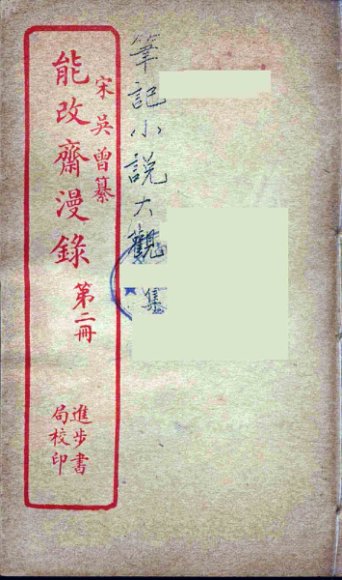 筆記小説大觀
集
宋吳曾纂
能改齋漫錄
第二冊
進步書
局校印